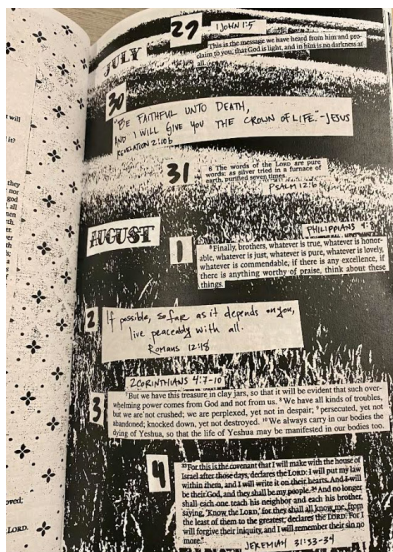 29
1 JOHN 1:5
This is the message we have heard from him and pro-
claim to you, that God is light, and in him is no darkness at
all.
JULY
30
"BE FAITHFUL UNTO DEATH,
AND I WILL GIVE YOU THE CROWN OF LIFE." -JESUS
REVELATION 2:10b
31
6 The words of the LORD are pure
words: as silver tried in a furnace of
earth, purified seven times.
PSALM 12:6
AUGUST
PHILIPPIANS 4:
1
8 Finally, brothers, whatever is true, whatever is honor-
able, whatever is just, whatever is pure, whatever is lovely,
whatever is commendable, if there is any excellence, if
there is anything worthy of praise, think about these
things.
2
If possible, so far as it depends on you,
live peaceably with all.
Romans 12:18
2 CORINTHIANS 4:7-10
3
7 But we have this treasure in clay jars, so that it will be evident that such over-
whelming power comes from God and not from us. 8 We have all kinds of troubles,
but we are not crushed; we are perplexed, yet not in despair; 9 persecuted, yet not
abandoned; knocked down, yet not destroyed. 10 We always carry in our bodies the
dying of Yeshua, so that the life of Yeshua may be manifested in our bodies too.
4
33 For this is the covenant that I will make with the house of
Israel after those days, declares the LORD: I will put my law
within them, and I will write it on their hearts. And I will
be their God, and they shall be my people. 34 And no longer
shall each one teach his neighbor and each his brother,
saying, 'Know the LORD,' for they shall all know me, from
the least of them to the greatest, declares the LORD. For I
will forgive their iniquity, and I will remember their sin no
more."
JEREMIAH 31:33-34